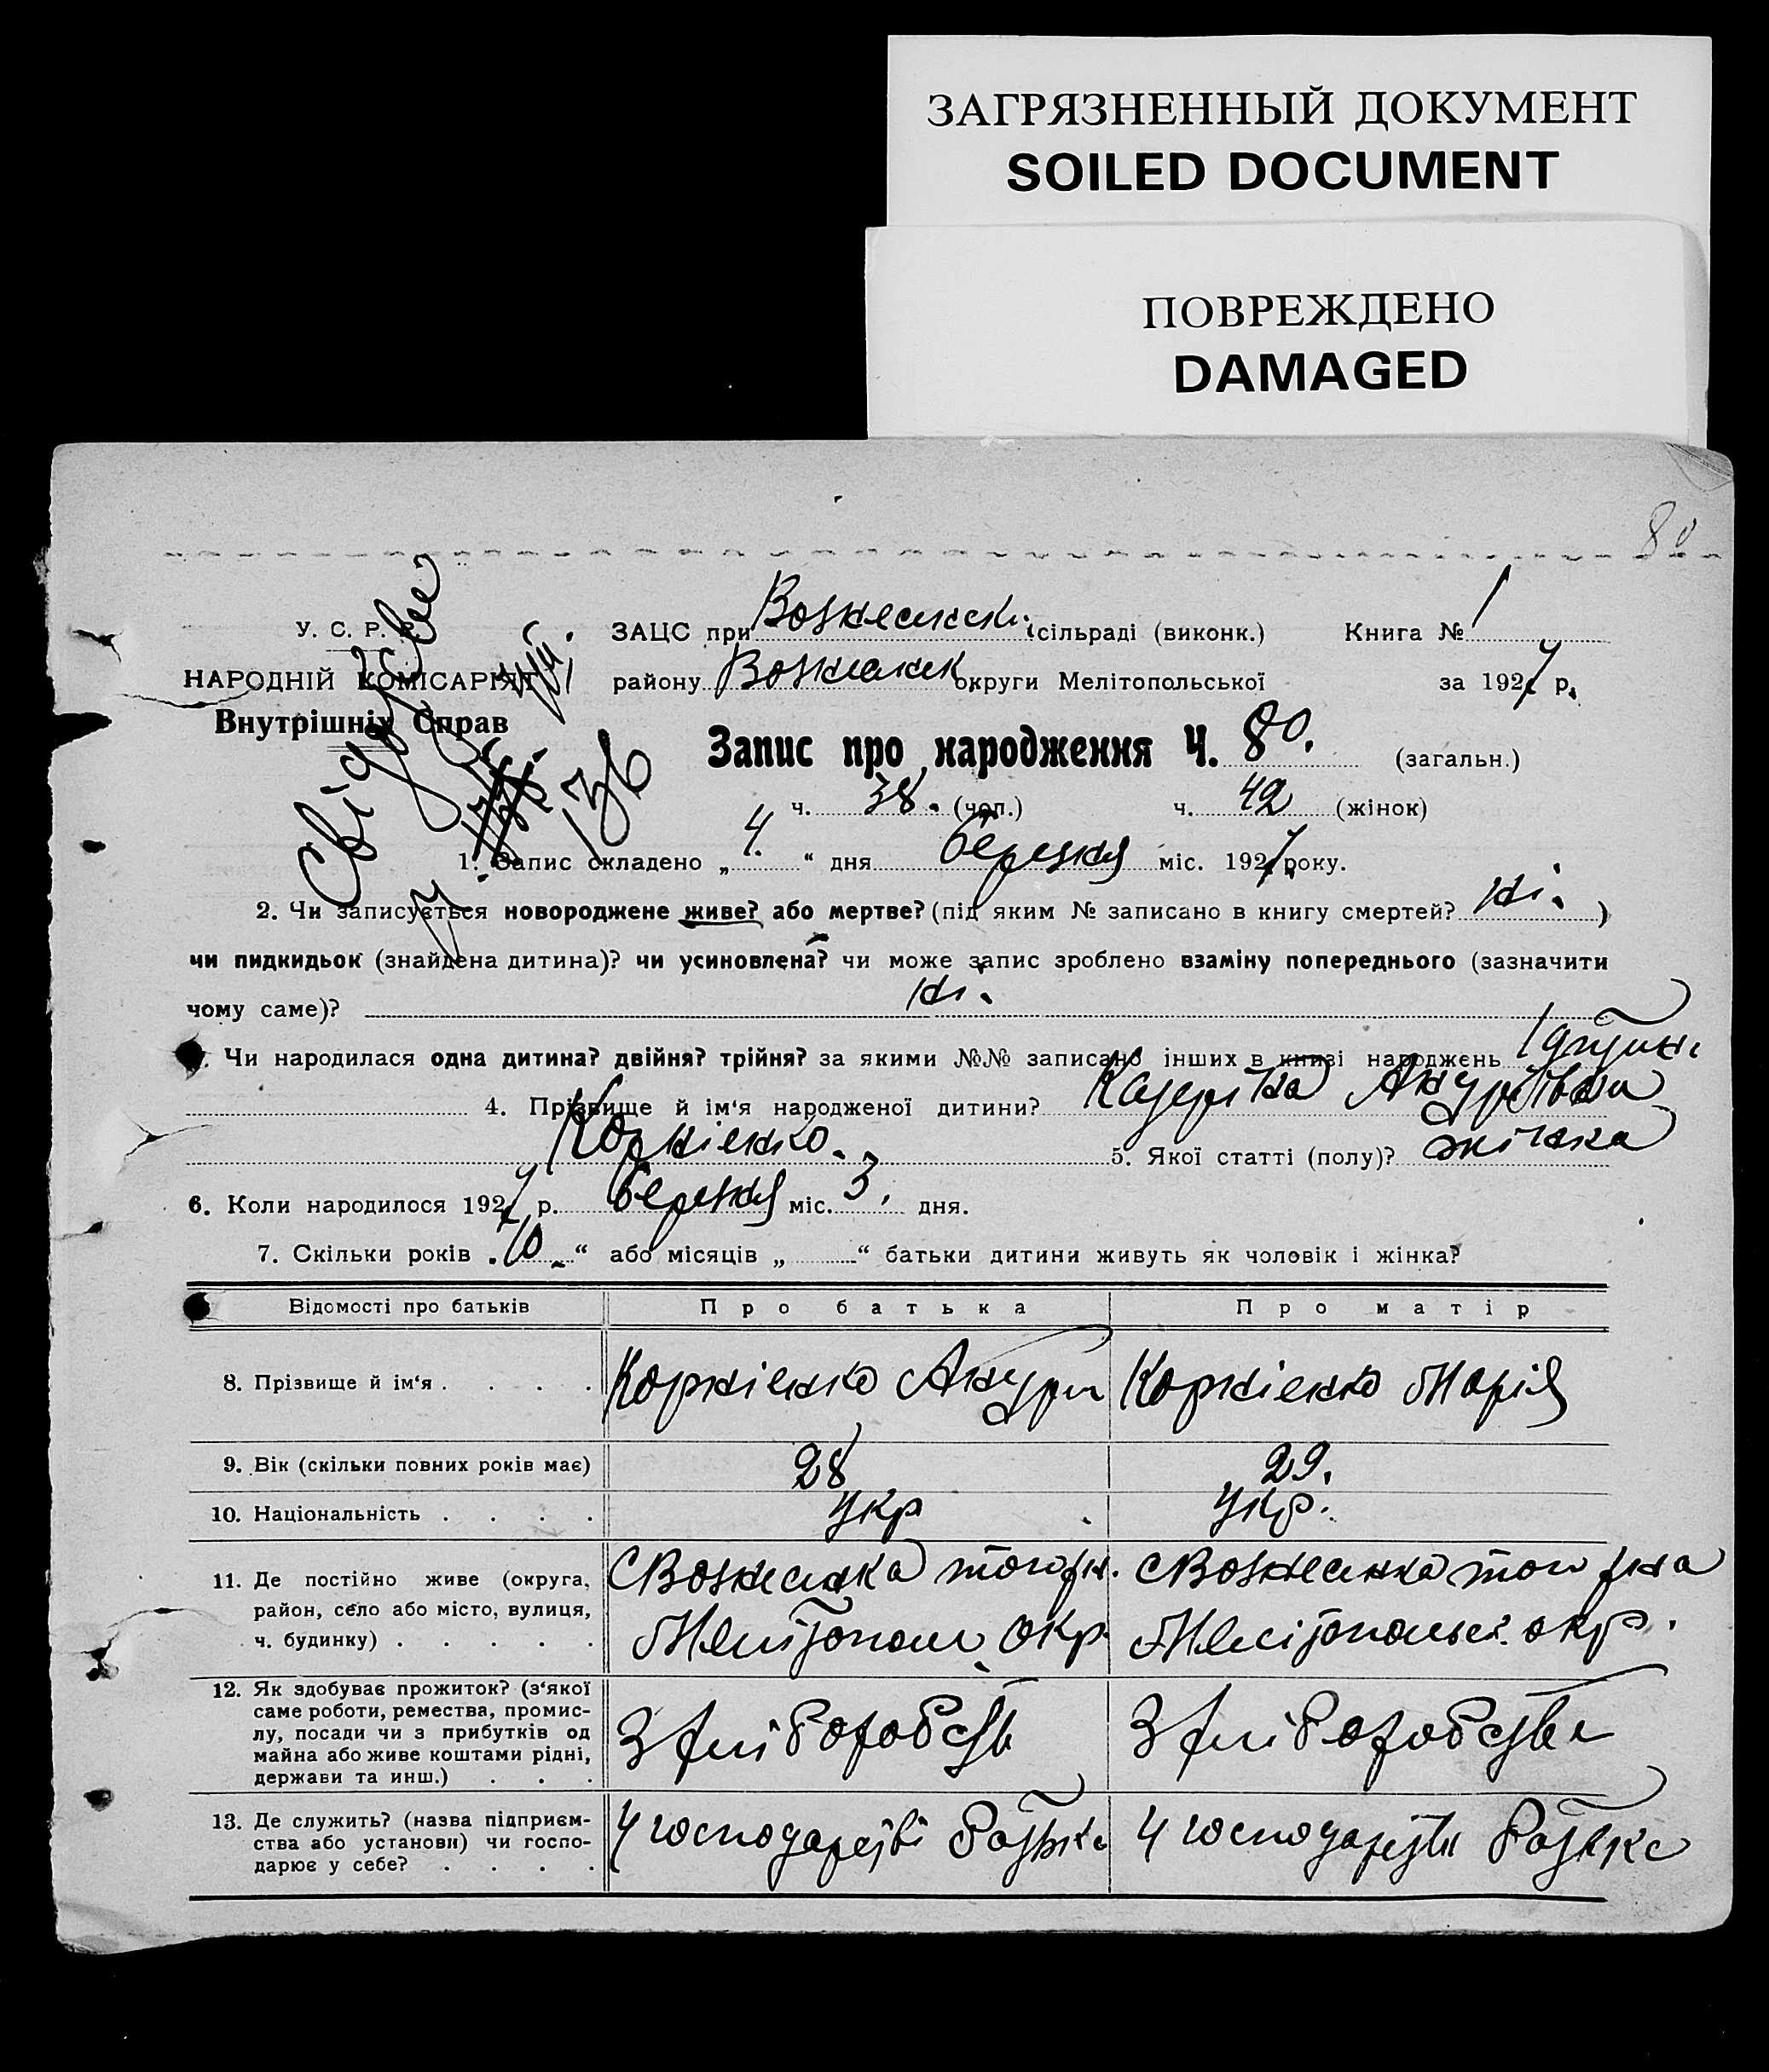 ЗАГРЯЗНЕННЫЙ ДОКУМЕНТ
SOILED DOCUMENT
ПОВРЕЖДЕНО
DAMAGED
80
У. С. Р. Р.
НАРОДНІЙ КОМІСАРІЯТ
Внутрішніх Справ
136
ЗАЦС при Вознесенськ. сільраді (виконк.) Книга № 1
району Вознесенск округи Мелітопольської за 1927 р.
Запис про народження Ч. 80. (загальн.)
ч. 38. (чол.) ч. 42 (жінок)
1. Запис складено „4.“ дня березня міс. 1927 року.
2. Чи записується новороджене живе? або мертве? (під яким № записано в книгу смертей? ні. )
чи пидкидьок (знайдена дитина)? чи усиновлена? чи може запис зроблено взаміну попереднього (зазначити
чому саме)? ні.
3. Чи народилася одна дитина? двійня? трійня? за якими №№ записано інших в книзі народжень 1 дитина
4. Прізвище й ім'я народженої дитини?
Корнієнко. 5. Якої статті (полу)? жінка
6. Коли народилося 1927 р. березня міс. 3. дня.
7. Скільки років „10“ або місяців „ “ батьки дитини живуть як чоловік і жінка?
Відомості про батьків Про батька Про матір
8. Прізвище й ім'я . . . . Корнієнко Андрій Корнієнко Марія
9. Вік (скільки повних років має) 28 29.
10. Національність . . . . Укр Укр.
11. Де постійно живе (округа, район, село або місто, вулиця, ч. будинку) . . . . .
С Вознесенка того рн. Мелітопол. окр.
С Вознесенка того рна Мелітопольс. окр.
12. Як здобуває прожиток? (з'якої саме роботи, ремества, промислу, посади чи з прибутків од майна або живе коштами рідні, держави та инш.) . . .
З хліборобств
З хліборобства
13. Де служить? (назва підприємства або установи) чи господарює у себе? . . . .
У господарстві батька
У господарстві батька